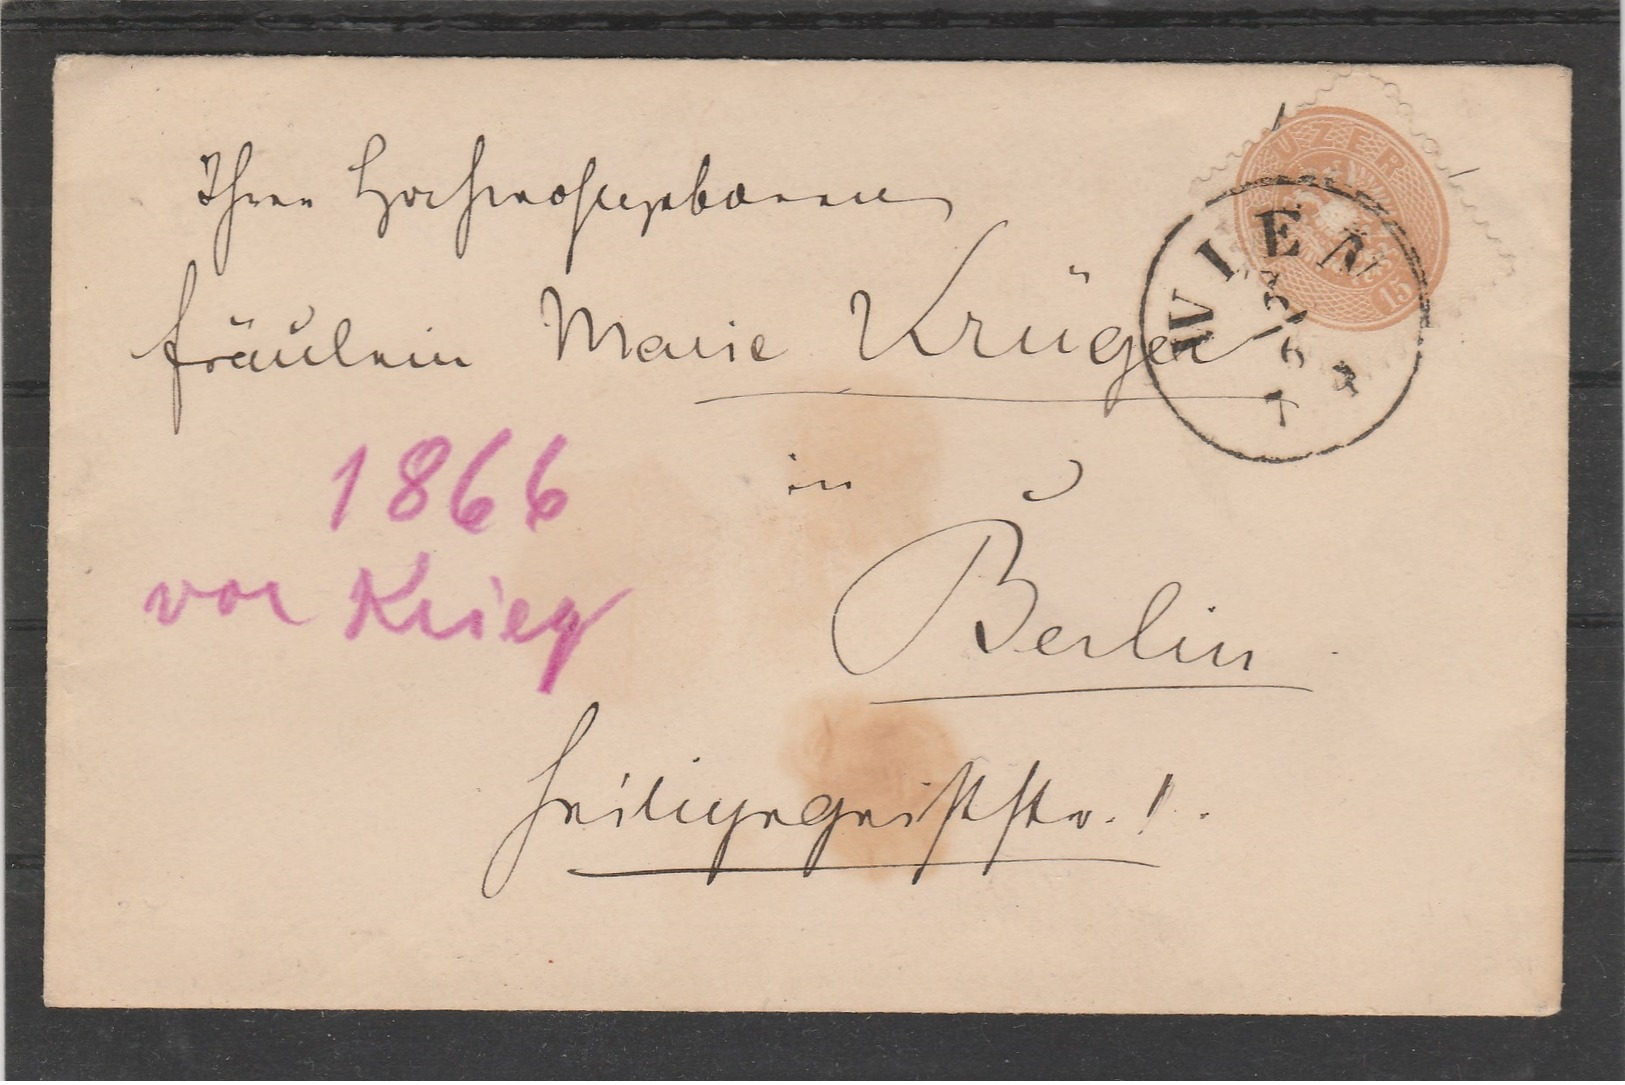 Ihrer Hochwohlgeboren
Fräulein Marie Krüger
in
Berlin
Heiligegeiststr. 1.
1866
vor Krieg
WIEN
UZER
15